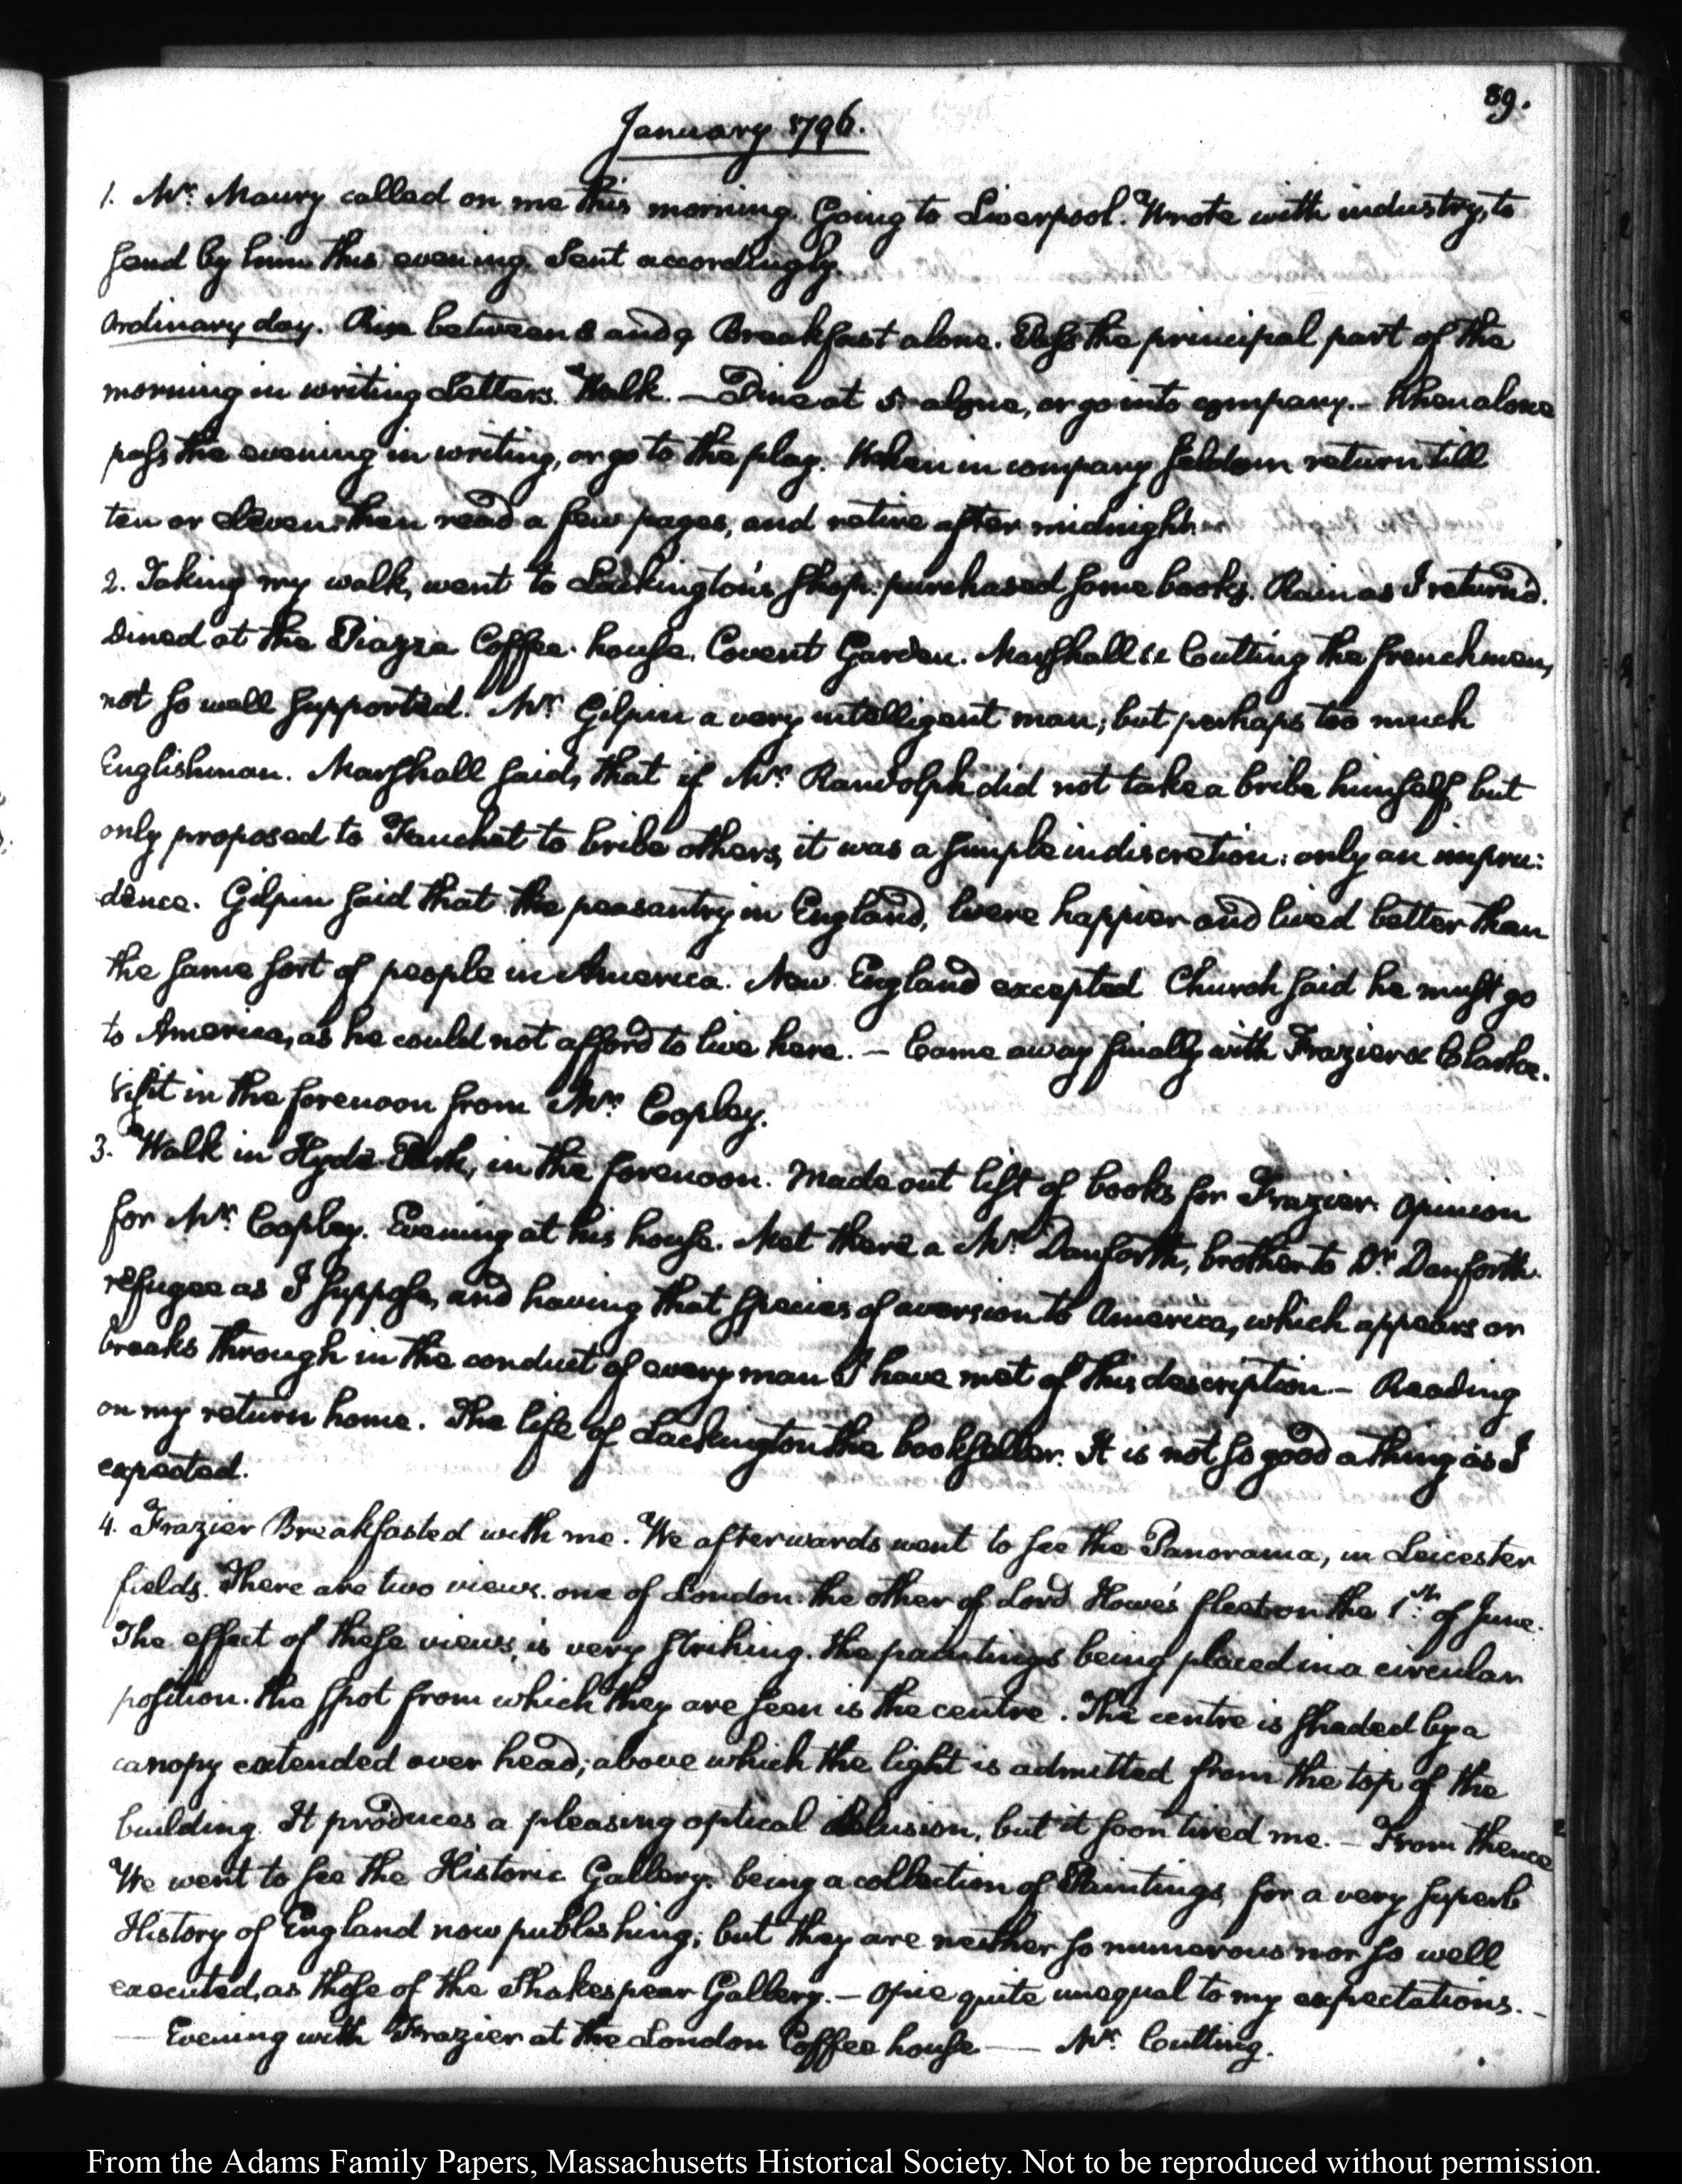 89.
January 1796.
1. Mr. Maury called on me this morning. Going to Liverpool. Wrote with industry, to
send by him this evening. Sent accordingly.
Ordinary day. Rise between 8 and 9 Breakfast alone. Pass the principal part of the
morning in writing Letters. Walk. — Dine at 5 alone, or go into company. — When alone
pass the evening in writing, or go to the play. When in company seldom return till
ten or eleven: then read a few pages, and retire after midnight.
2. Taking my walk, went to Lackington's shop: purchased some books. Rain as I return'd.
Dined at the Piazza Coffee-house, Covent Garden. Marshall & Cutting the frenchmen,
not so well supported. Mr. Gilpin a very intelligent man; but perhaps too much
Englishman. Marshall said, that if Mr. Randolph did not take a bribe himself, but
only proposed to Fauchet to bribe others, it was a simple indiscretion: only an impru:
dence. Gilpin said that the peasantry in England, were happier and lived better than
the same sort of people in America. New England excepted Church said he must go
to America, as he could not afford to live here. — Came away finally with Frazier & Clarke.
Visit in the forenoon from Mr. Copley.
3. Walk in Hyde Park, in the forenoon. Made out list of books for Frazier. Opinion
for Mr. Copley. Evening at his house. Met there a Mr. Danforth, brother to Dr. Danforth.
refugee as I suppose, and having that species of aversion to America, which appears or
breaks through in the conduct of every man I have met of this description. — Reading
on my return home. The life of Lackington the bookseller. It is not so good a thing as I
expected.
4. Frazier Breakfasted with me. We afterwards went to see the Panorama, in Leicester
fields. There are two views. one of London. the other of Lord Howe's fleet on the 1st. of June.
The effect of these views, is very striking. the paintings being placed in a circular
position. the spot from which they are seen is the centre. The centre is shaded by a
canopy extended over head; above which the light is admitted from the top of the
building. It produces a pleasing optical delusion, but it soon tired me. — From thence
We went to see the Historic Gallery. being a collection of Paintings, for a very superb
History of England now publishing; but they are neither so numerous nor so well
executed, as those of the Shakespear Gallery. — Opie quite unequal to my expectations. —
— Evening with Frazier at the London Coffee house — Mr. Cutting.
From the Adams Family Papers, Massachusetts Historical Society. Not to be reproduced without permission.